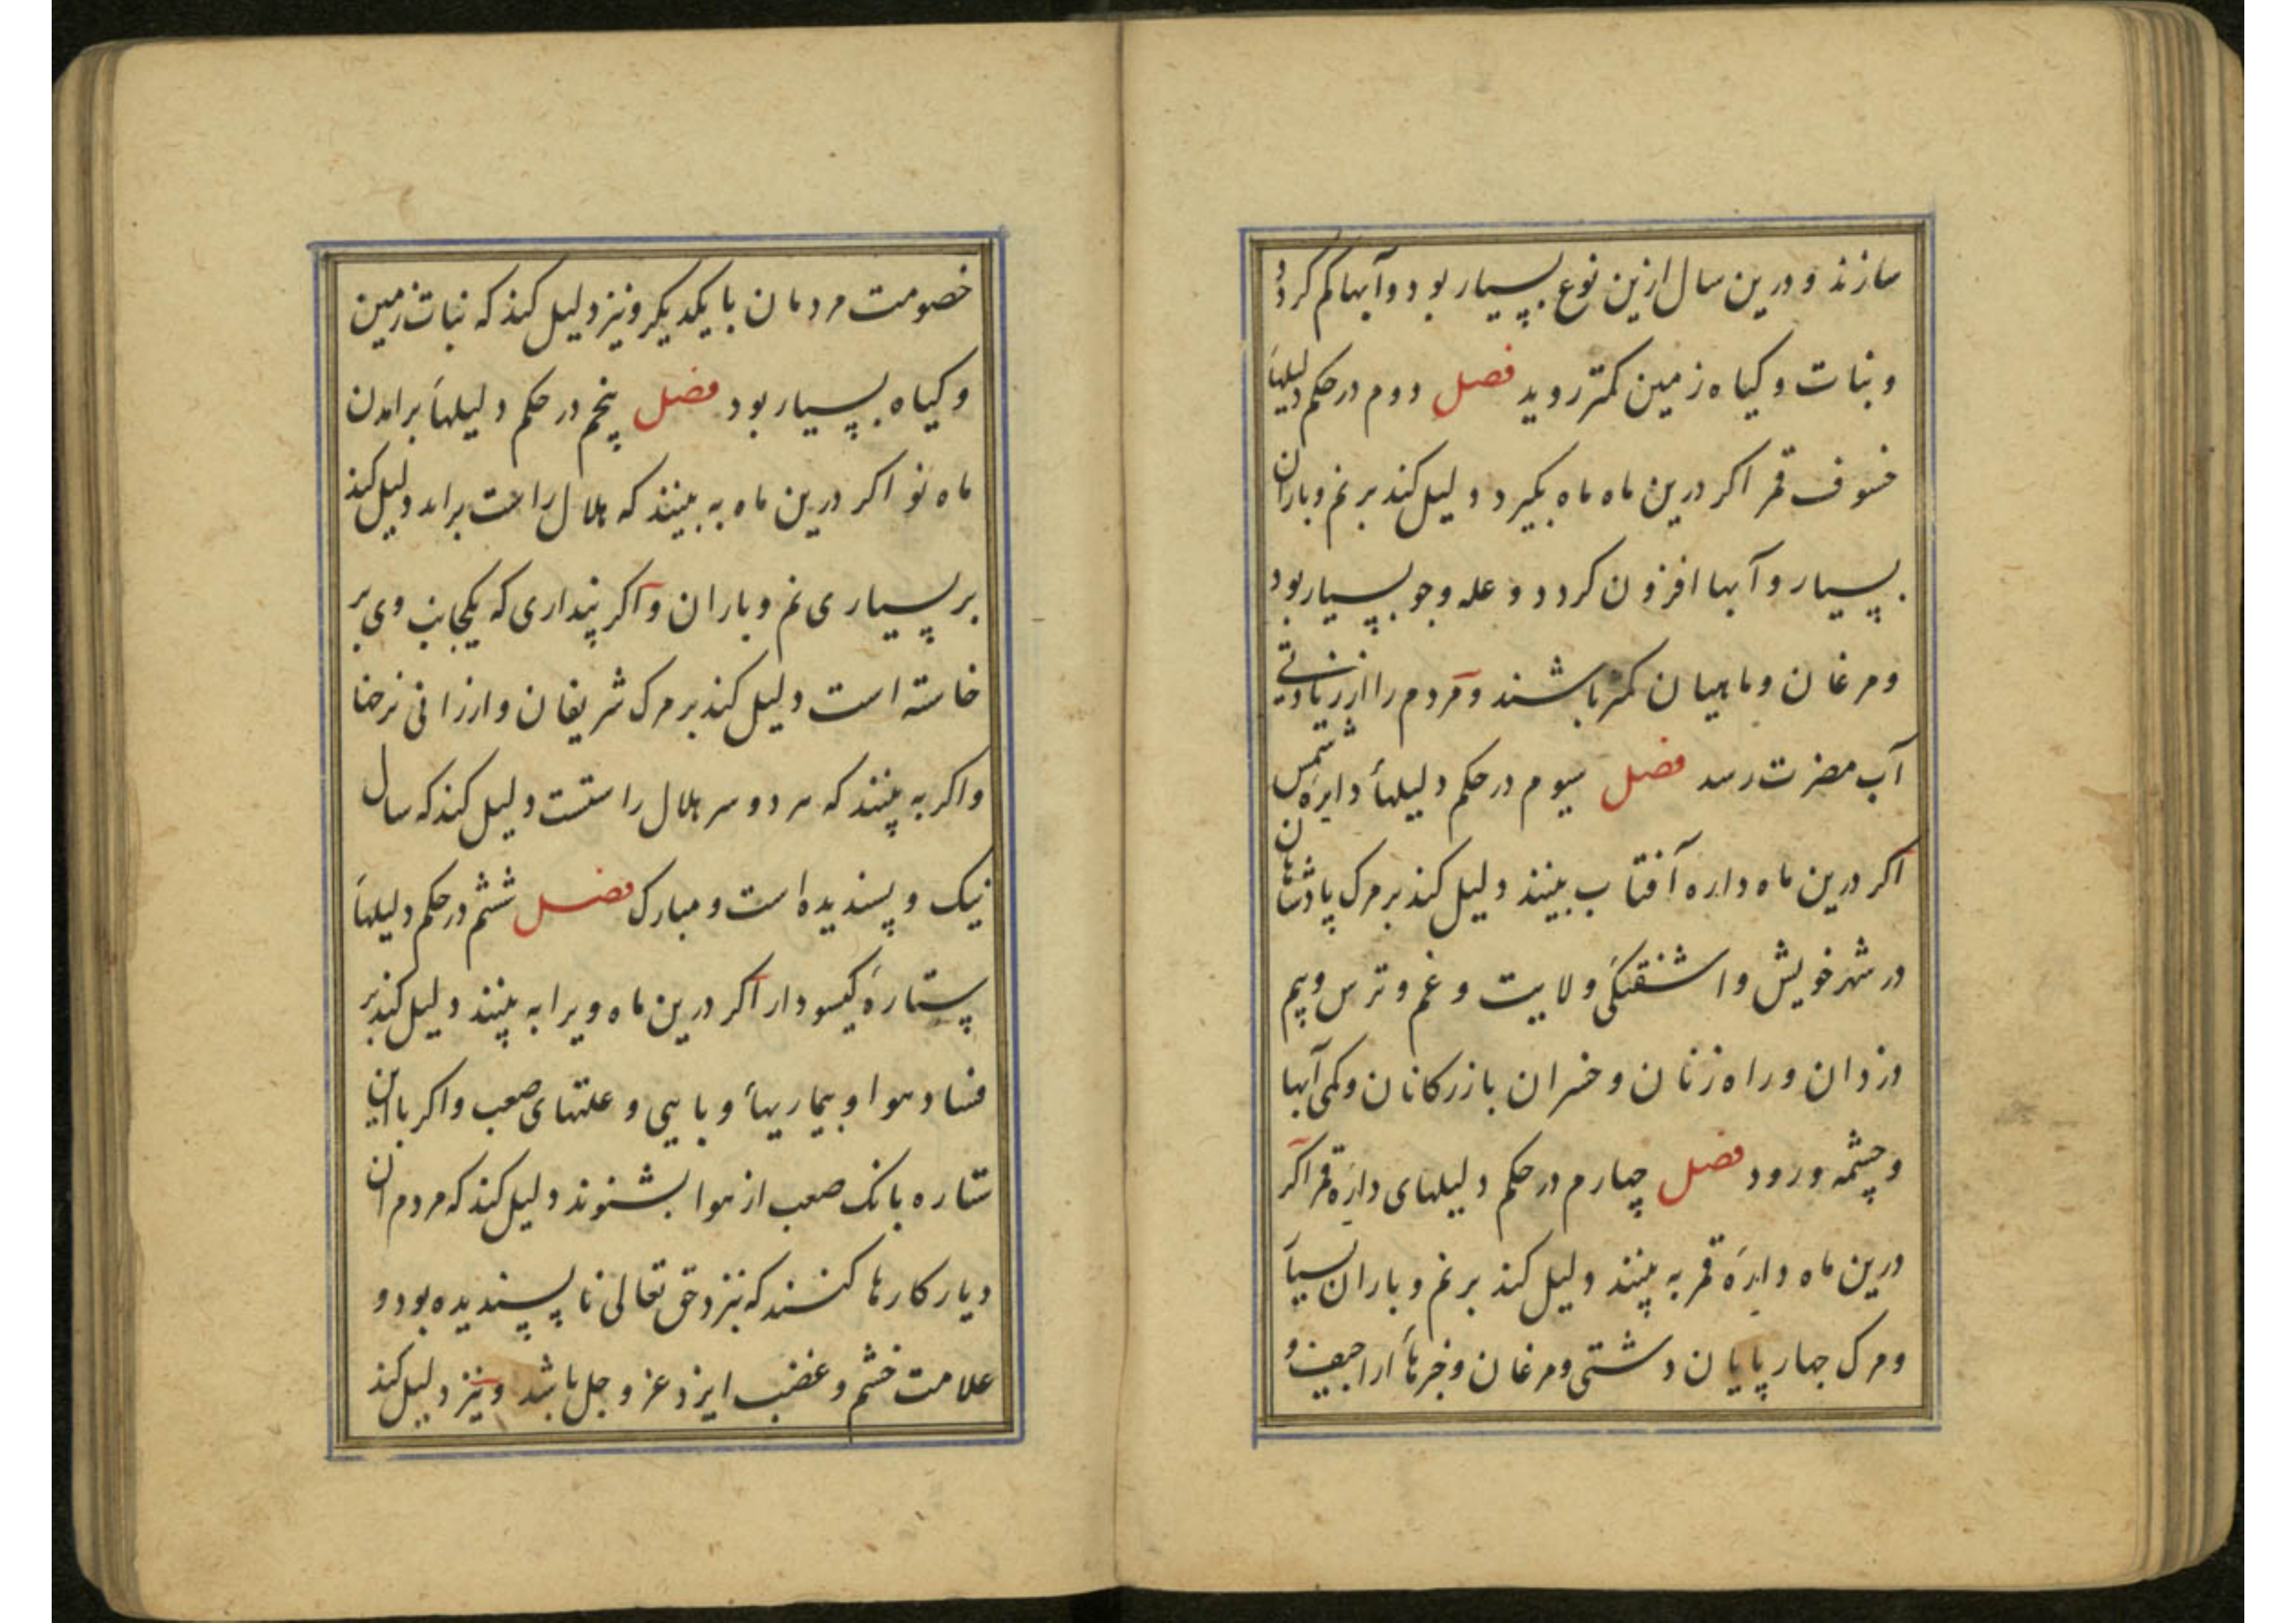 سازند و درین سال ازین نوع بسیار بود و آبها کم کردد
و نبات و کیاه زمین کمتر روید فصل دوم در حکم دلیلهاء
خسوف قمر اکر درین ماه ماه بکیرد دلیل کند بر نم و باران
بسیار و آبها افزون کردد و غله و جو بسیار بود
و مرغان و ماهیان کمتر باشند و مردم را از زیادتی
آب مضرت رسد فصل سیوم در حکم دلیلهاء دایره شمس
اکر درین ماه دایره آفتاب بینند دلیل کند بر مرک پادشاهان
در شهر خویش و اشفتکی ولایت و غم و ترس و بیم
دزدان و راه زنان و خسران بازرکانان و کمی آبها
و چشمه و رود فصل چهارم در حکم دلیلهای دایره قمر اکر
درین ماه دایرهٔ قمر به بینند دلیل کند بر نم و باران بسیار
و مرک چهار پایان دشتی و مرغان و خبرهاء اراجیف و
خصومت مردمان با یکدیکر و نیز دلیل کند که نبات زمین
و کیاه بسیار بود فصل پنجم در حکم دلیلهاء برامدن
ماه نو اکر درین ماه به بینند که هلال راست براید دلیل کند
بر بسیاری نم و باران و اکر پنداری که یکجانب وی بر
خاسته است دلیل کند بر مرک شریفان و ارزانی نرخها
و اکر به بینند که هر دو سر هلال راستست دلیل کند که سال
نیک و پسندیده است و مبارک فصل ششم در حکم دلیلهاء
ستارهٔ کیسودار اکر درین ماه ویرا به بینند دلیل کند بر
فساد هوا و بیماریهاء وبایی و علتهای صعب و اکر با این
ستاره بانک صعب از هوا بشنوند دلیل کند که مردم ان
دیار کارها کنند که نزد حق تعالی نا پسندیده بود و
علامت خشم و غضب ایزد عز و جل باشد و نیز دلیل کند